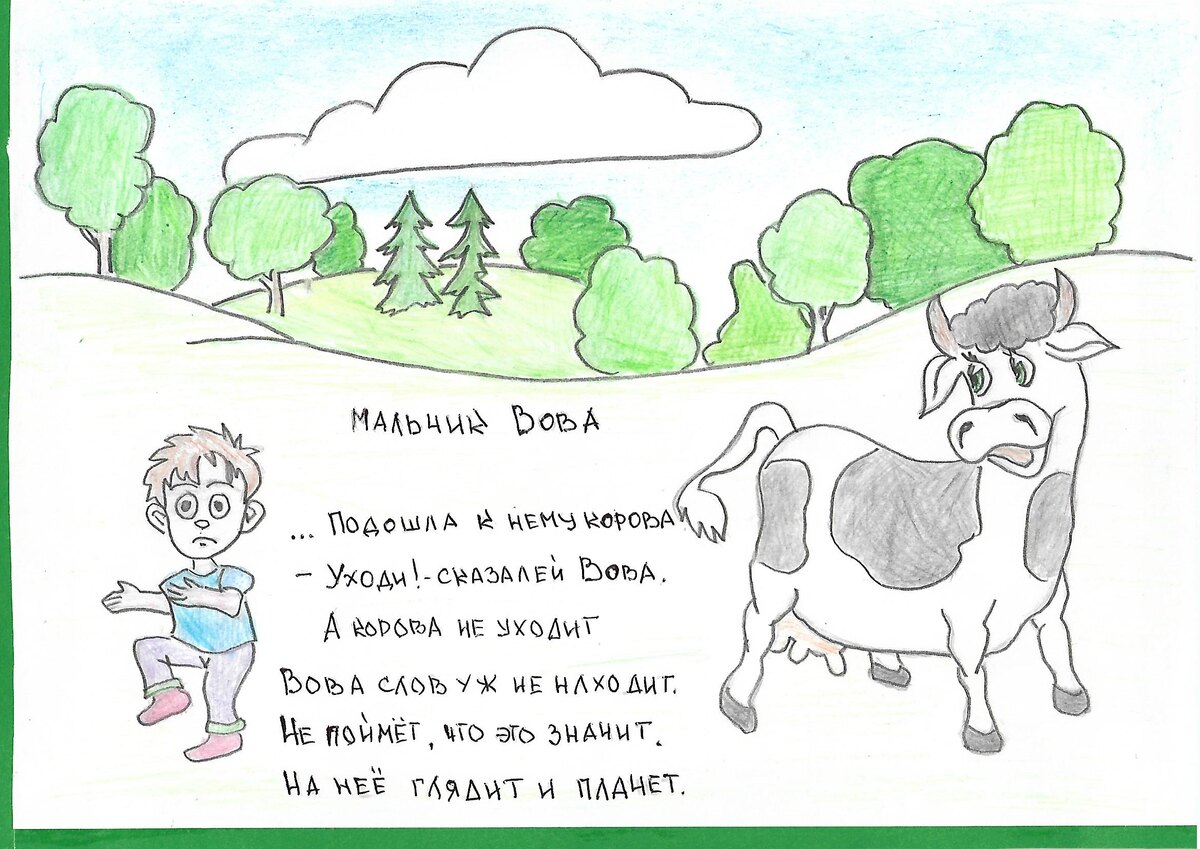 Мальчик Вова
... Подошла к нему корова
- Уходи! - сказалей Вова.
А корова не уходит
Вова слов уж не находит.
Не поймёт, что это значит.
На неё глядит и плачет.